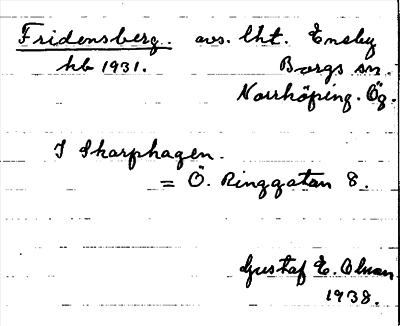 Fridensberg. avs. lht. Ensby
hb 1931. Borgs sn.
Norrköping. Ög.
I Skarphagen.
= Ö. Ringgatan 8.
Gustaf E. Olson
1938.